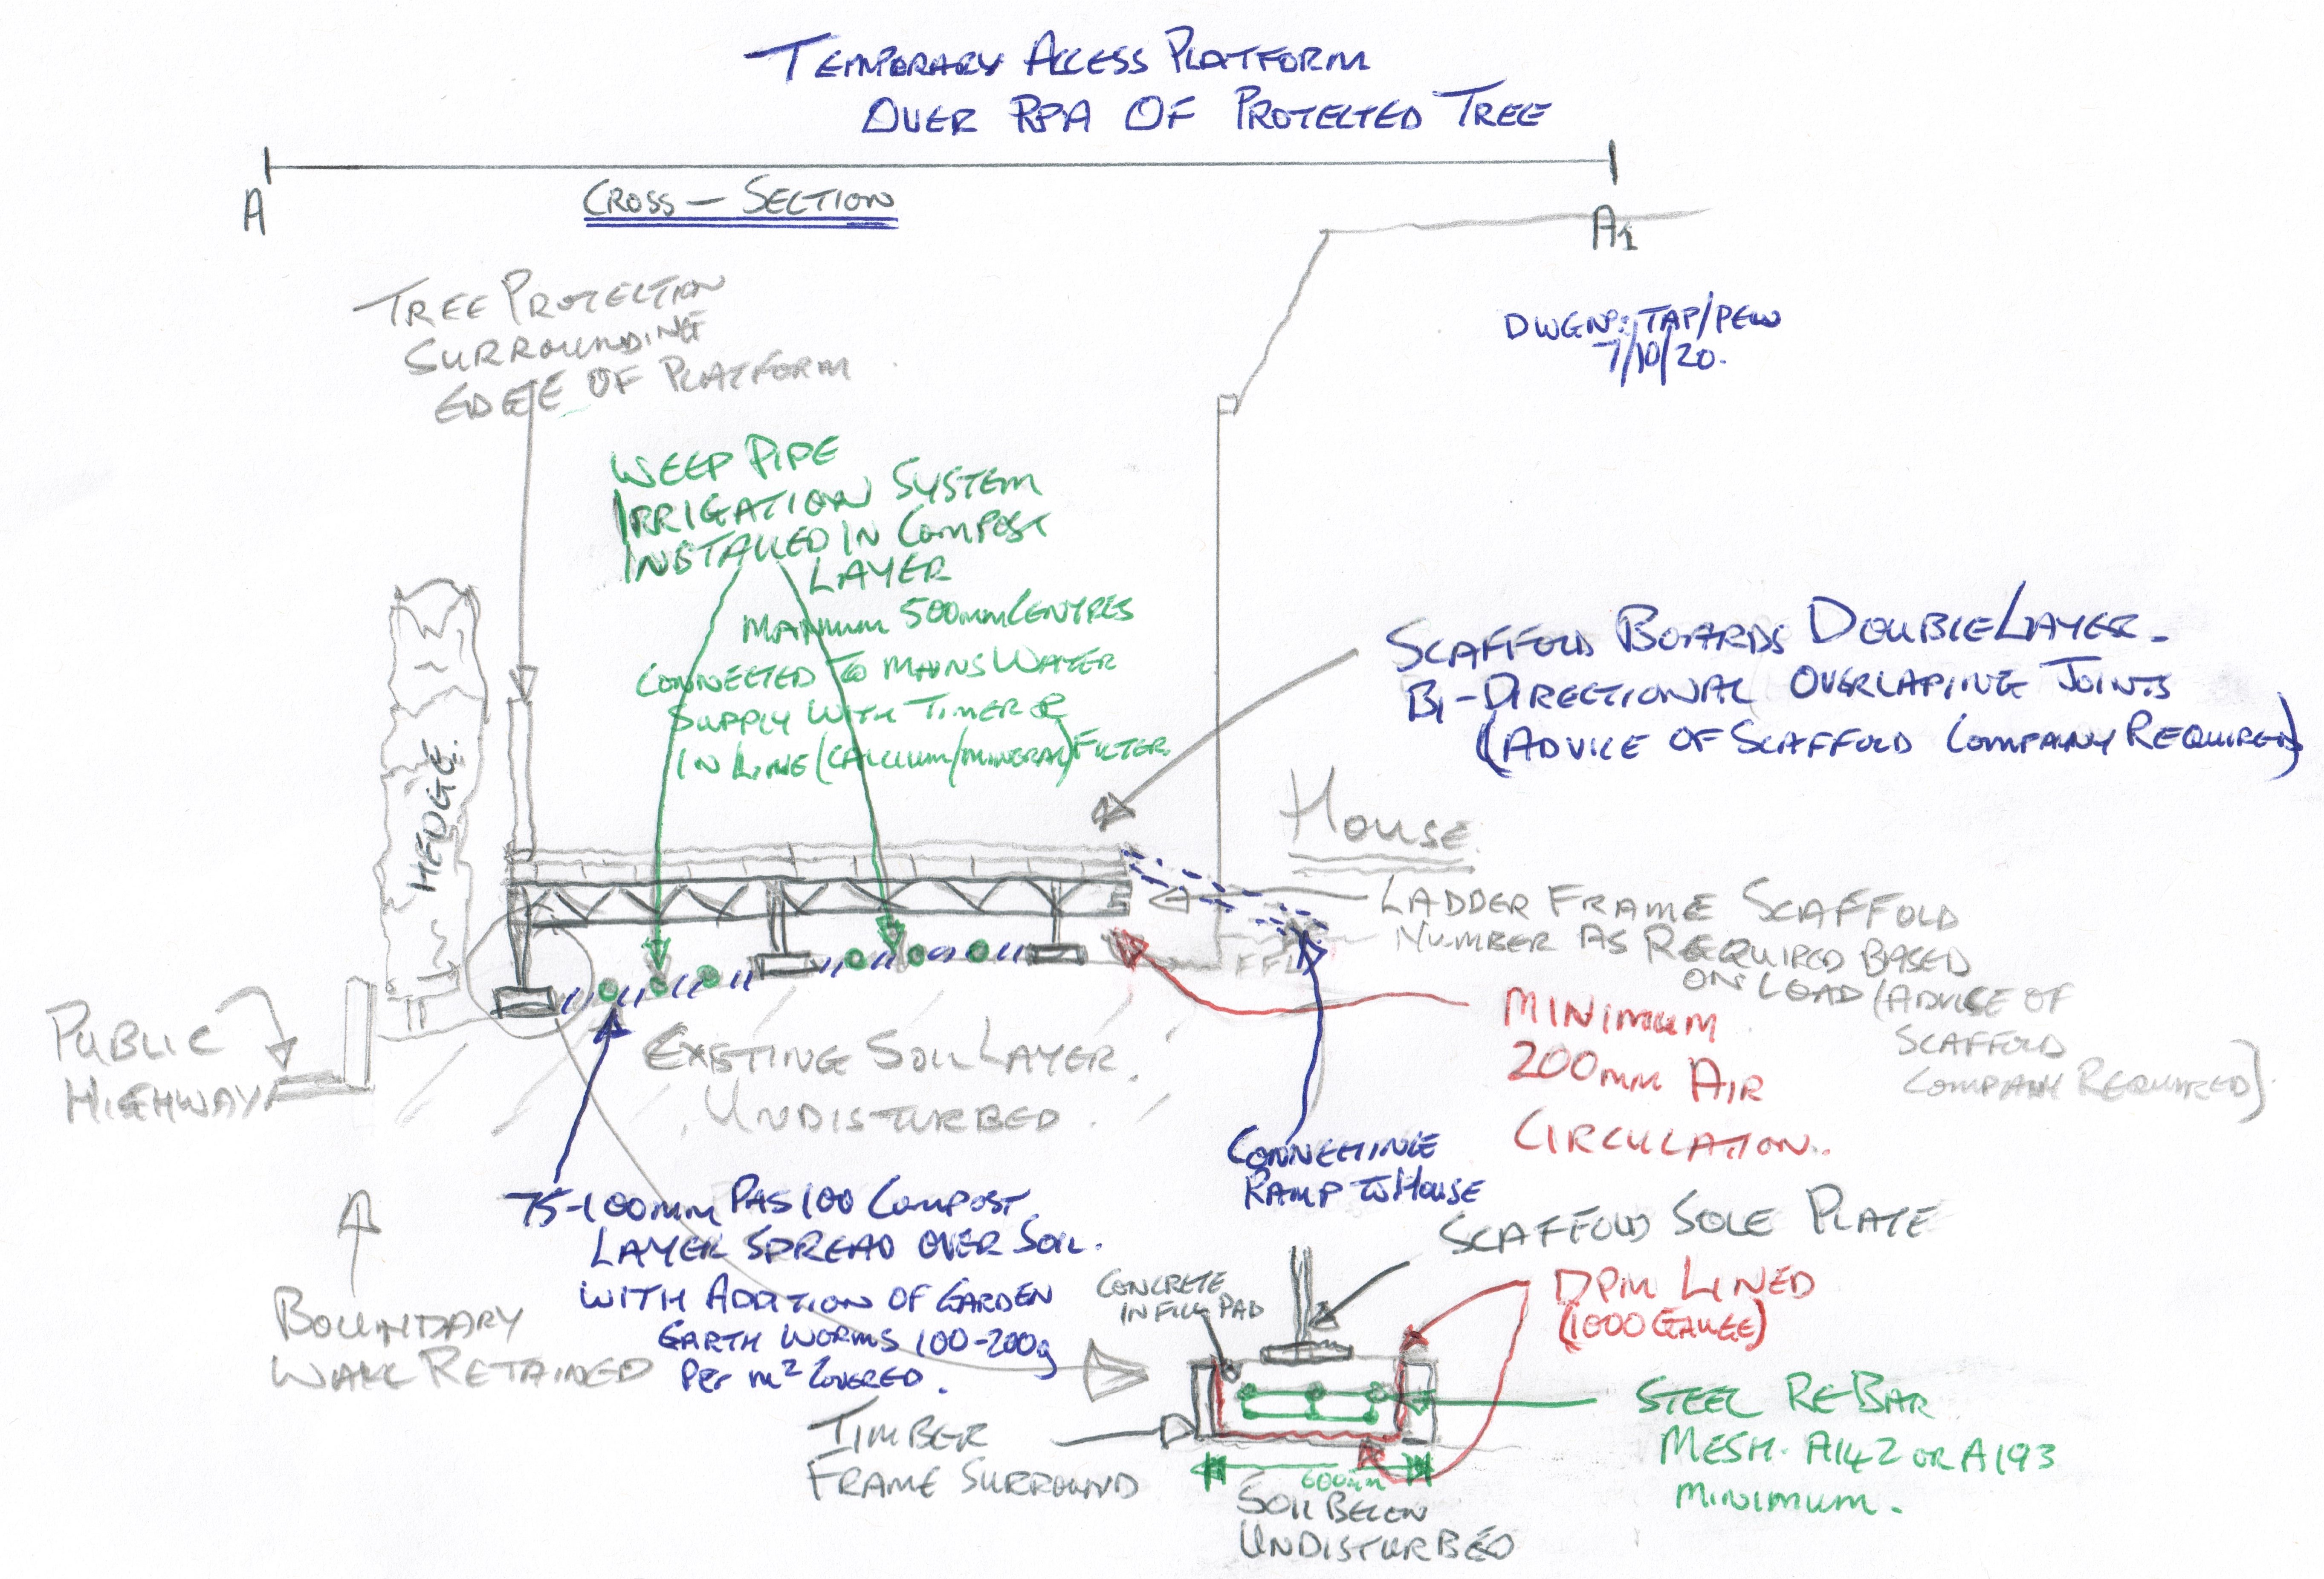 TEMPORARY ACCESS PLATFORM
OVER RPA OF PROTECTED TREE
A
CROSS - SECTION
A1
DWG Nº: TAP/PEW
7/10/20.
TREE PROTECTION
SURROUNDING
EDGE OF PLATFORM
WEEP PIPE
IRRIGATION SYSTEM
INSTALLED IN COMPOST
LAYER
MAXIMUM 500mm CENTRES
CONNECTED TO MAINS WATER
SUPPLY WITH TIMER &
IN LINE (CALCIUM/MINERAL) FILTER
SCAFFOLD BOARDS DOUBLE LAYER -
BI-DIRECTIONAL OVERLAPING JOINTS
(ADVICE OF SCAFFOLD COMPANY REQUIRED)
HEDGE.
HOUSE
LADDER FRAME SCAFFOLD
NUMBER AS REQUIRED BASED
ON LOAD (ADVICE OF
SCAFFOLD
COMPANY REQUIRED)
FFL
MINIMUM
200mm AIR
CIRCULATION.
PUBLIC
HIGHWAY
EXISTING SOIL LAYER.
UNDISTURBED.
CONNECTING
RAMP TO HOUSE
75-100mm PAS 100 COMPOST
LAYER SPREAD OVER SOIL.
WITH ADDITION OF GARDEN
EARTH WORMS 100-200g
PER m² COVERED.
BOUNDARY
WALL RETAINED
SCAFFOLD SOLE PLATE
CONCRETE
INFILL PAD
DPM LINED
(1000 GAUGE)
STEEL RE-BAR
MESH. A142 OR A193
MINIMUM.
TIMBER
FRAME SURROUND
600mm
SOIL BELOW
UNDISTURBED